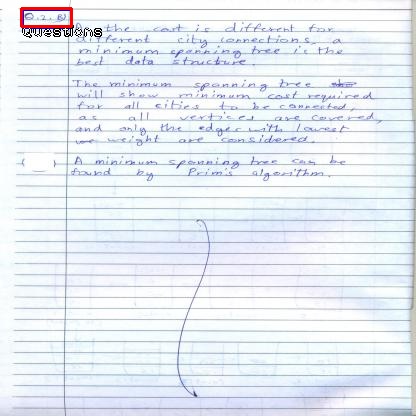 Q.2. B)
Questions
As the cost is different for
different city connections, a
minimum spanning tree is the
best data structure.
The minimum spanning tree
will show minimum cost required
for all cities to be connected,
as all vertices are covered,
and only the edges with lowest
weight are considered.
A minimum spanning tree can be
found by Prim's algorithm.